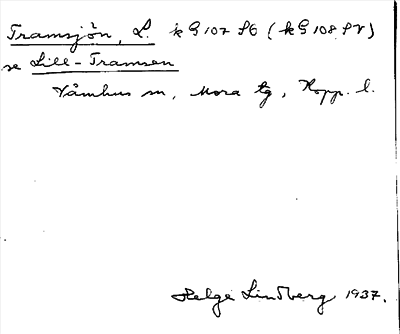 Tramsjön, L. k G 107 SÖ (k G 108 SV)
se Lill-Tramsen
Våmhus sn, Mora tg, Kopp. l.
Helge Lindberg 1937.